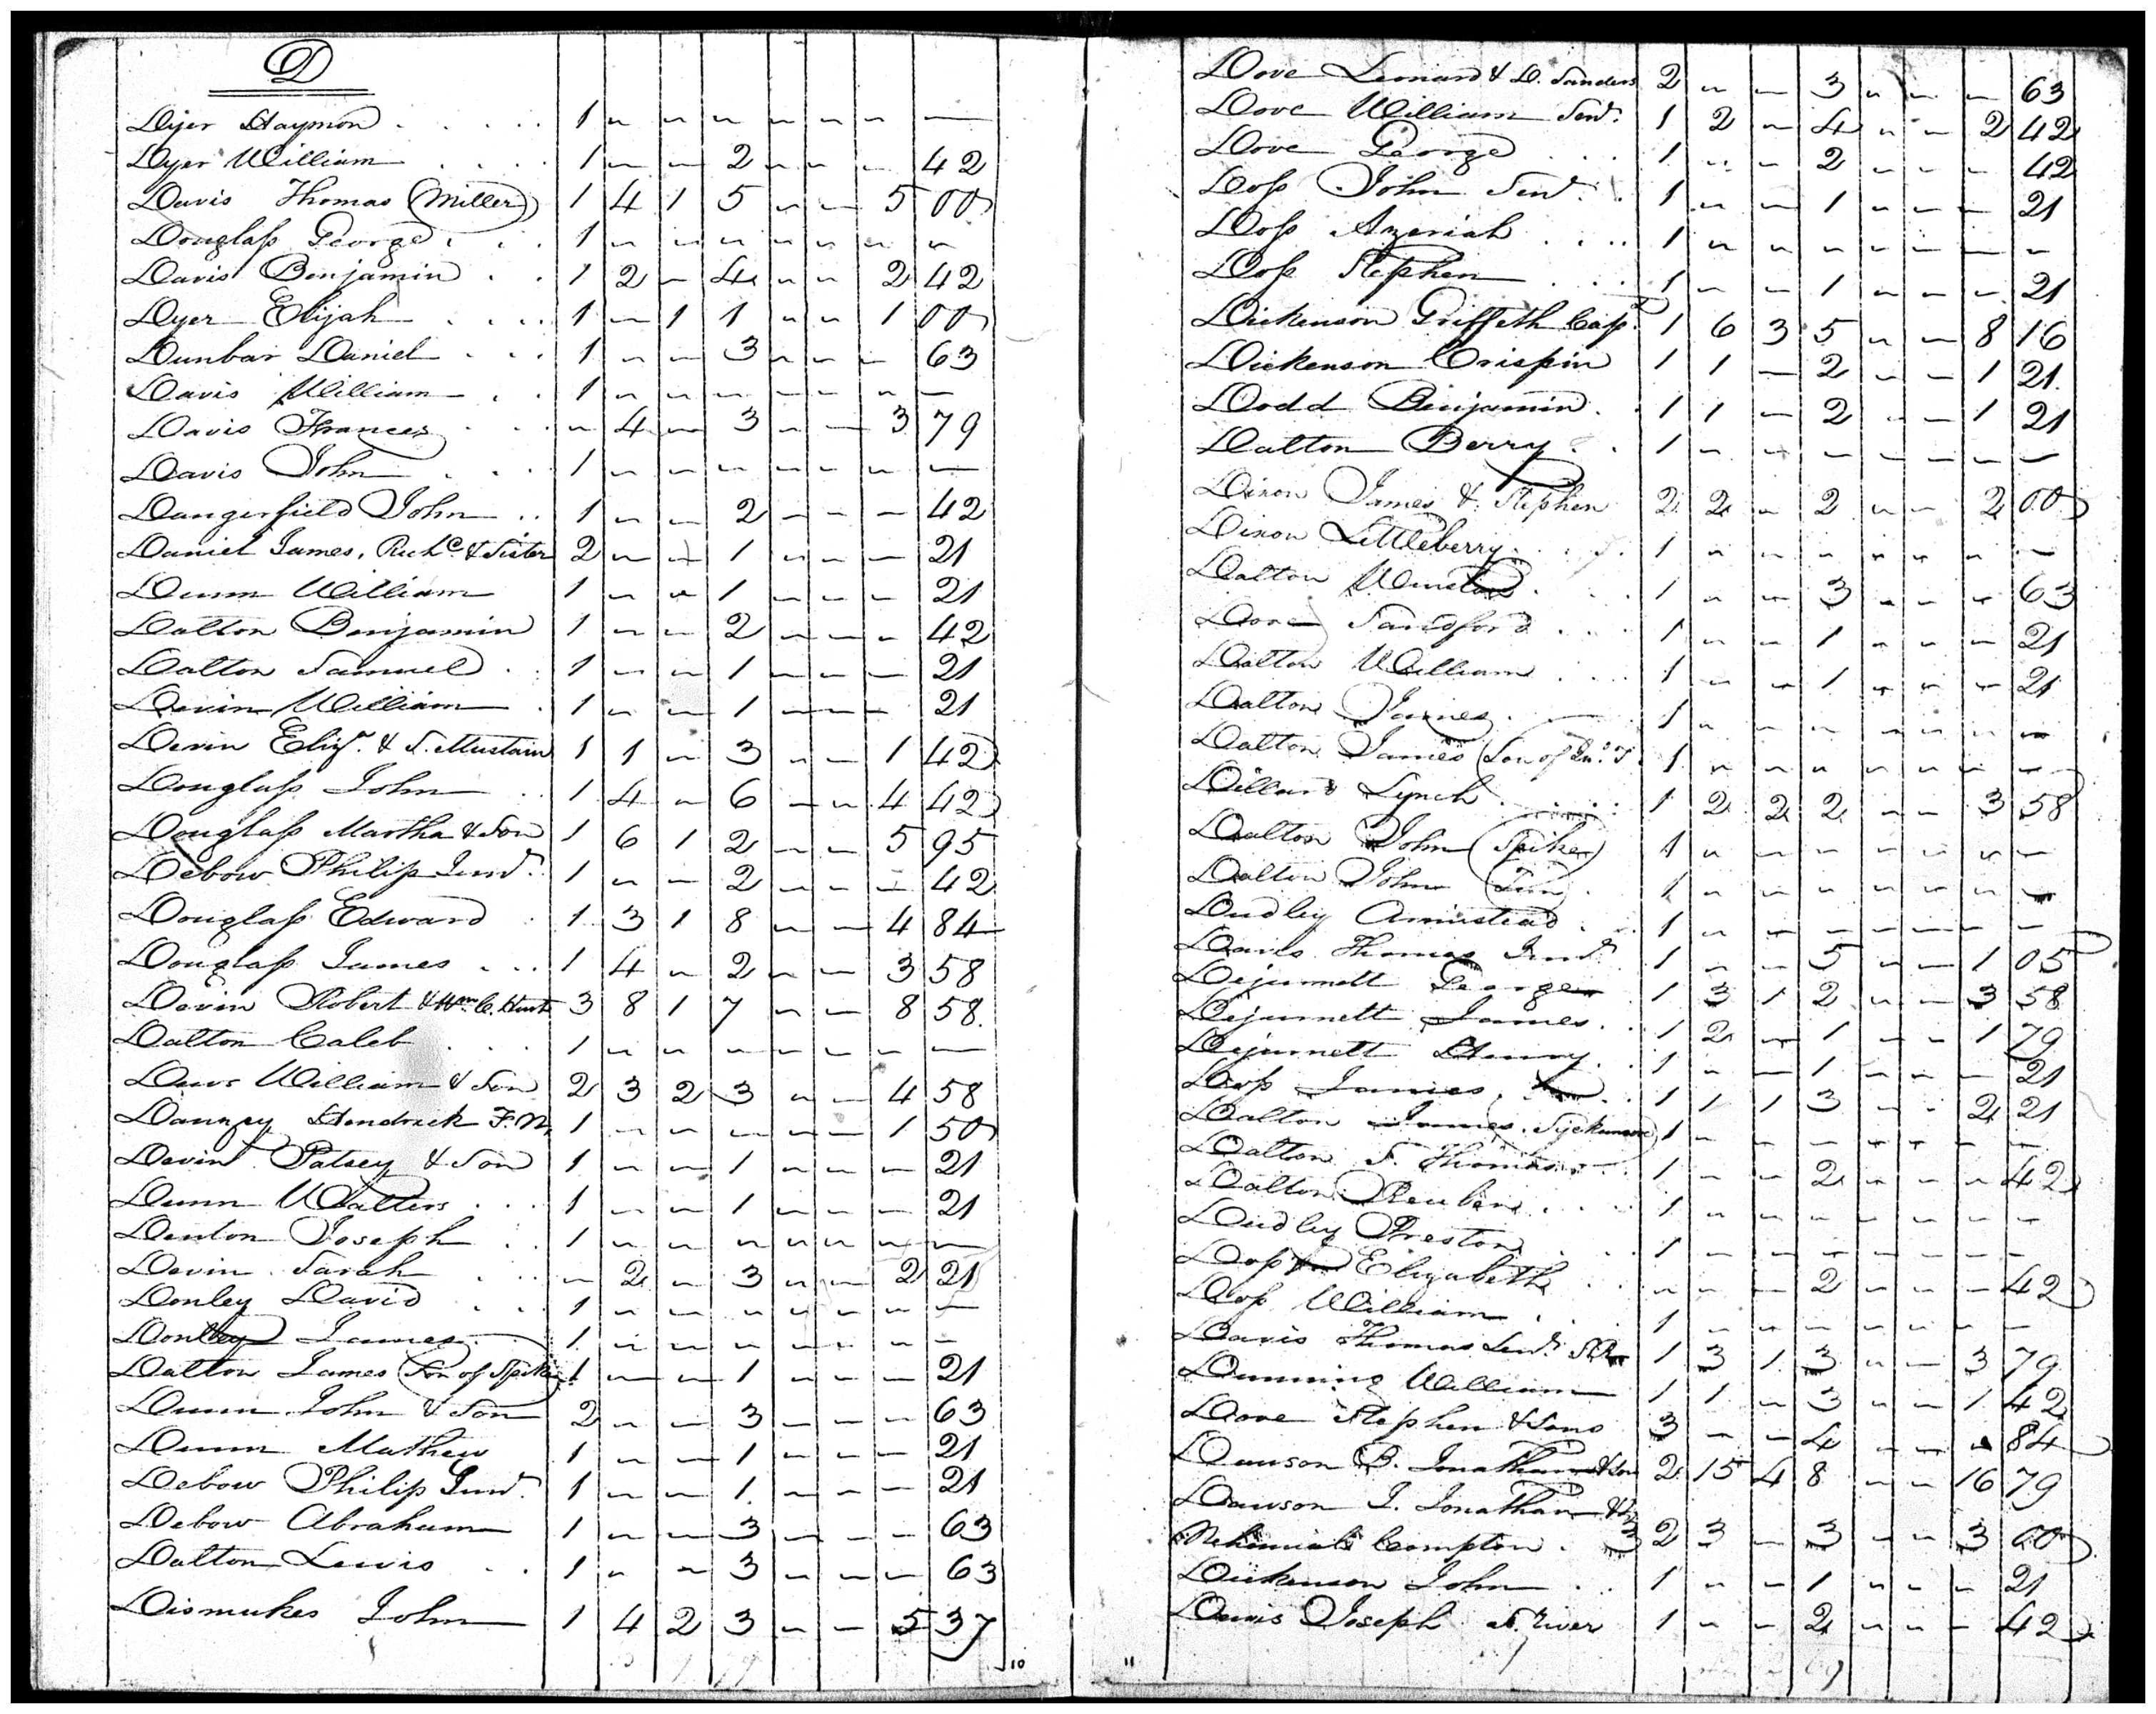 D
Dyer Haymon . . . . . 1 " " " " " " —
Dyer William . . . . 1 " " 2 " " " 42
Davis Thomas (Miller) 1 4 1 5 " " 5 00
Douglass George . . . 1 " " " " " " "
Davis Benjamin . . 1 2 " 4 " " 2 42
Dyer Elijah . . . . 1 " 1 1 " " 1 00
Dunbar Daniel . . . 1 " " 3 " " " 63
Davis William . . 1 " " " " " " —
Davis Frances . . . " 4 " 3 " " 3 79
Davis John . . . 1 " " " " " " —
Dangerfield John . . 1 " " 2 " " " 42
Daniel James, Richd. & Sister 2 " " 1 " " " 21
Dunn William 1 " " 1 " " " 21
Dalton Benjamin 1 " " 2 " " " 42
Dalton Samuel . . 1 " " 1 " " " 21
Devin William . 1 " " 1 " " " 21
Devin Eliza. & S. Mustain 1 1 " 3 " " 1 42
Douglass John . . 1 4 " 6 " " 4 42
Douglass Martha & Son 1 6 1 2 " " 5 95
Debow Philip Junr. 1 " " 2 " " " 42
Douglass Edward . 1 3 1 8 " " 4 84
Douglass James . . . 1 4 " 2 " " 3 58
Devin Robert & Wm. C. 3 8 1 7 " " 8 58
Dalton Caleb . . . 1 " " " " " " —
Dews William & Son 2 3 2 3 " " 4 58
Hendrick F. N. 1 " " " " " 1 50
Devin Patsey & Son 1 " " 1 " " " 21
Dunn Walters . . . 1 " " 1 " " " 21
Denton Joseph . . 1 " " " " " " —
Devin Sarah . . . " 2 " 3 " " 2 21
Donley David . . 1 " " " " " " —
Donley James . . 1 " " " " " " "
Dalton James (Son of Spiker) 1 " " 1 " " " 21
Dunn John & Son 2 " " 3 " " " 63
Dunn Mathew 1 " " 1 " " " 21
Debow Philip Junr. 1 " " 1 " " " 21
Debow Abraham 1 " " 3 " " " 63
Dalton Lewis . . 1 " " 3 " " " 63
Dismukes John 1 4 2 3 " " 5 37
10
Dove Leonard & D. Sanders 2 " " 3 " " " 63
Dove William Senr. 1 2 " 4 " " 2 42
Dove George . . . 1 " " 2 " " " 42
Doss John Senr. . 1 " " 1 " " " 21
Doss Azariah . . . . 1 " " " " " " "
Doss Stephen . . . 1 " " 1 " " " 21
Dickenson Griffeth Capt. 1 6 3 5 " " 8 16
Dickenson Crispin 1 1 " 2 " " 1 21
Dodd Benjamin . . 1 1 " 2 " " 1 21
Dalton Berry . . 1 " " " " " " —
Dixon James & Stephen 2 2 " 2 " " 2 00
Dixon Littleberry . . . 1 " " " " " " —
Dalton Winston . . . 1 " " 3 " " " 63
Dove Sandford . . . 1 " " 1 " " " 21
Dalton William . . . 1 " " 1 " " " 21
Dalton James . . 1 " " " " " " "
Dalton James (Son of Jno. T 1 " " " " " " —
Dillard Lynch . . . . 1 2 2 2 " " 3 58
Dalton John (Spiker) 1 " " " " " " —
Dalton John (Tin) . 1 " " " " " " —
Dudley Armistead . 1 " " " " " " —
Davis Thomas Junr. 1 " " 5 " " 1 05
Dejurnett George 1 3 1 2 " " 3 58
Dejurnett James . . 1 2 " 1 " " 1 79
Dejurnett Henry . . 1 " " 1 " " " 21
Doss James . . 1 1 1 3 " " 2 21
Dalton James 1 " " " " " " —
Dalton S. Thomas . . 1 " " 2 " " " 42
Dalton Reuben . . . . 1 " " " " " " "
Dudley Preston . . . 1 " " " " " " —
Doss Elizabeth . . " " " 2 " " " 42
Doss William . . . 1 " " " " " " —
Davis Thomas Senr. 1 3 1 3 " " 3 79
Dunning William 1 1 " 3 " " 1 42
Dove Stephen & Sons 3 " " 4 " " " 84
Dawson B. Jonathan & Son 2 15 4 8 " " 16 79
Dawson J. Jonathan &
Nehemiah Compton . 3 2 3 " 3 " " 3 00
Dickenson John . . 1 " " 1 " " " 21
Davis Joseph S. River 1 " " 2 " " " 42
11